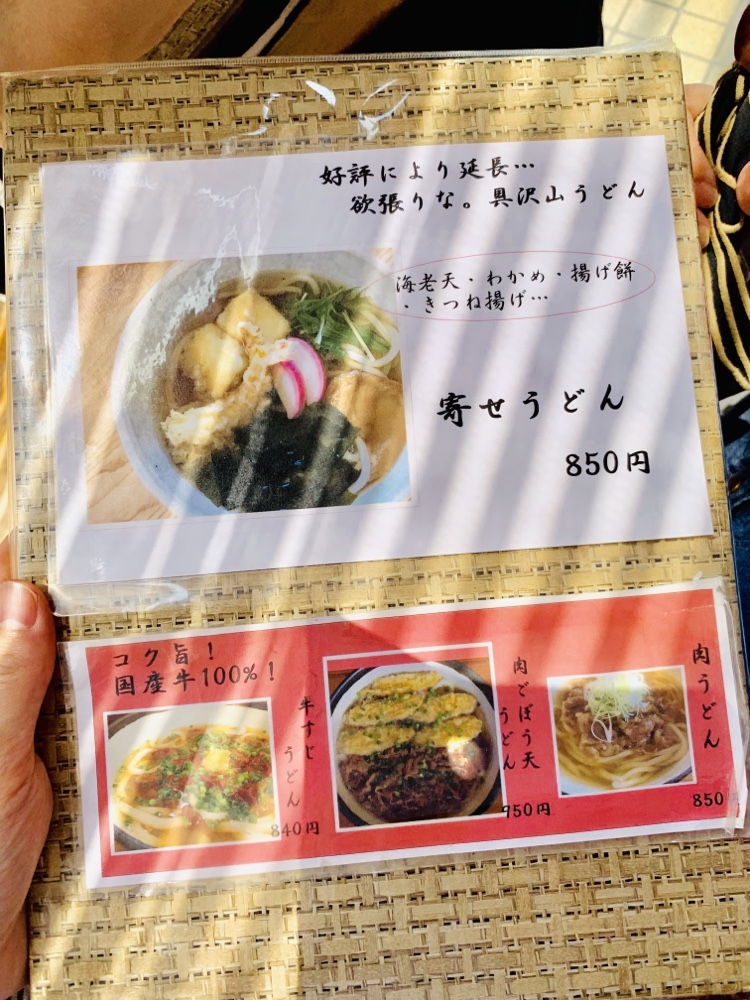 好評により延長…
欲張りな。具沢山うどん
海老天・わかめ・揚げ餅
・きつね揚げ…
寄せうどん
850円
コク旨！
国産牛100%！
牛すじ
うどん
840円
肉ごぼう天
うどん
950円
肉うどん
850